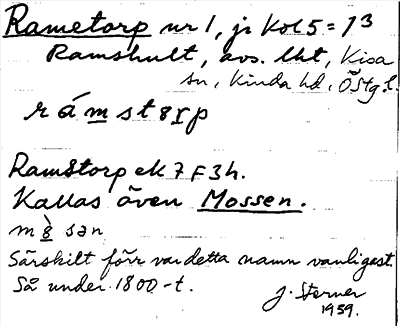 Rametorp nr 1, jr Kol 5 = 13
Ramshult, avs. lht, Kisa
sn, Kinda hd, Östg.l.
r á m s t 8 r p
Ramstorp ek 7 F 3 h.
Kallas även Mossen.
m 8̀ s ə n
Särskilt förr var detta namn vanligast.
Så under 1800-t.
J. Sterner
1959.